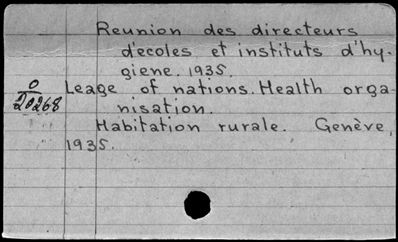 Reunion des directeurs
d'ecoles et instituts d'hy-
giene. 1935.
O
20268
Leage of nations. Health orga-
nisation.
Habitation rurale. Genève,
1935.